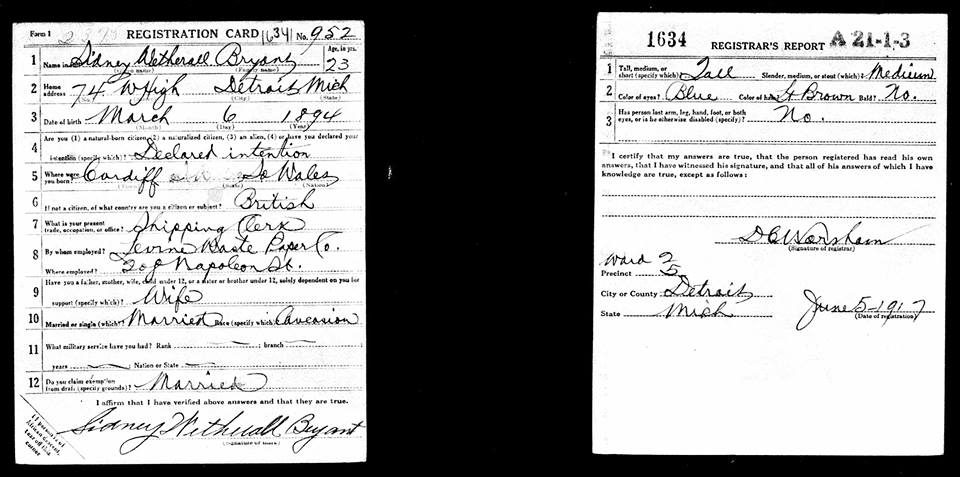 Form 1 REGISTRATION CARD 1634 No. 952
1 Name in full Sidney Wetherall Bryant Age, in yrs. 23
(Given name) (Family name)
2 Home address 74 W High Detroit Mich
(No.) (City) (State)
3 Date of birth March 6 1894
(Month) (Day) (Year)
4 Are you (1) a natural-born citizen, (2) a naturalized citizen, (3) an alien, (4) or have you declared your
intention (specify which)? Declared intention
5 Where were you born? Cardiff So Wales
(Town) (State) (Nation)
6 If not a citizen, of what country are you a citizen or subject? British
7 What is your present trade, occupation, or office? Shipping Clerk
8 By whom employed? Levine Waste Paper Co.
Where employed? 208 Napoleon St.
9 Have you a father, mother, wife, child under 12, or a sister or brother under 12, solely dependent on you for
support (specify which)? Wife
10 Married or single (which)? Married Race (specify which)? Caucasion
11 What military service have you had? Rank ; branch
years ; Nation or State
12 Do you claim exemption from draft (specify grounds)? Married
I affirm that I have verified above answers and that they are true.
Sidney Wetherall Bryant
(Signature or mark)
If person is of African descent, tear off this corner
1634 REGISTRAR'S REPORT A 21-1-3
1 Tall, medium, or short (specify which)? Tall Slender, medium, or stout (which)? Medium
2 Color of eyes? Blue Color of hair? Lt Brown Bald? No.
3 Has person lost arm, leg, hand, foot, or both
eyes, or is he otherwise disabled (specify)? No.
I certify that my answers are true, that the person registered has read his own
answers, that I have witnessed his signature, and that all of his answers of which I have
knowledge are true, except as follows:
(Signature of registrar)
Ward 2
Precinct 5
City or County Detroit
State Mich June 5-1917
(Date of registration)